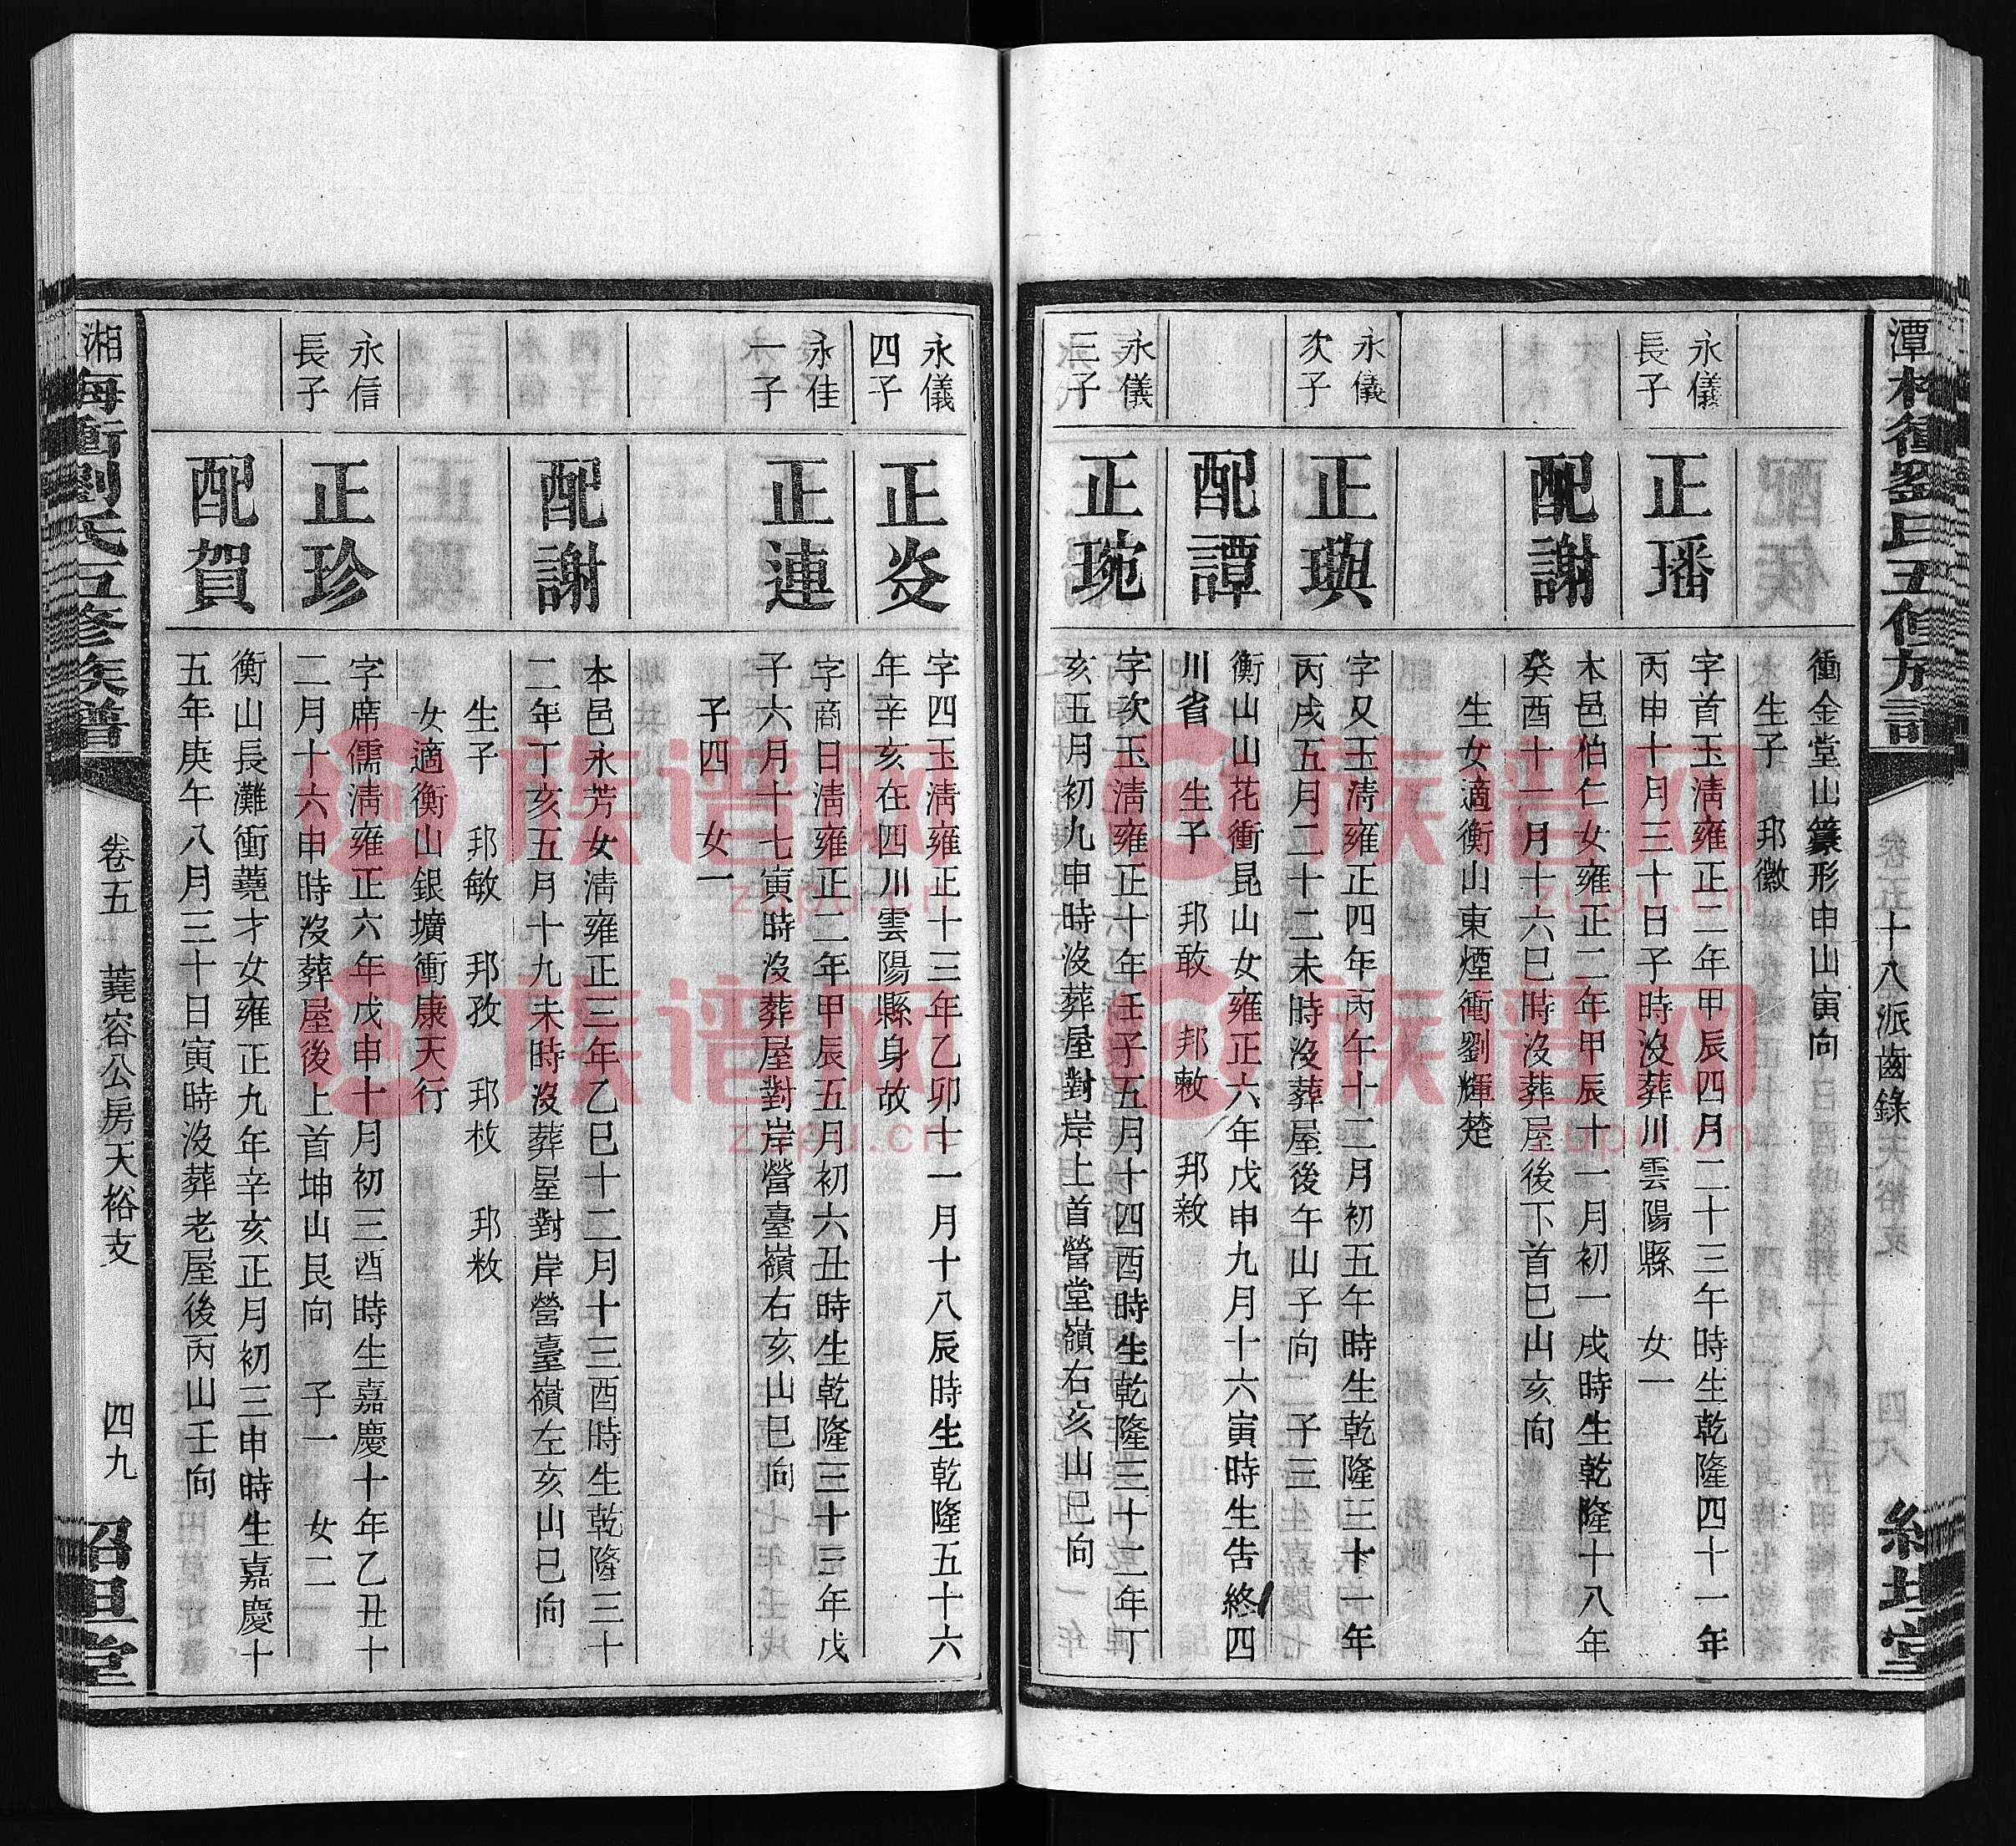 十八派齒錄
衝金堂山篆形申山寅向
生子　邦徽
永儀
長子
正璠
字首玉淸雍正二年甲辰四月二十三午時生乾隆四十一年
丙申十月三十日子時沒葬川雲陽縣　女一
配謝
本邑伯仁女雍正二年甲辰十一月初一戌時生乾隆十八年
癸酉十一月十六巳時沒葬屋後下首巳山亥向
生女適衡山東煙衝劉輝楚
永儀
次子
正璵
字又玉淸雍正四年丙午十二月初五午時生乾隆三十一年
丙戌五月二十二未時沒葬屋後午山子向　子三
配譚
衡山山花衝昆山女雍正六年戊申九月十六寅時生告終四
川省　生子　邦敢　邦敕　邦敹
永儀
三子
正琬
字次玉淸雍正十年壬子五月十四酉時生乾隆三十二年丁
亥五月初九申時沒葬屋對岸上首營堂嶺右亥山巳向
永儀
四子
正炎
字四玉淸雍正十三年乙卯十一月十八辰時生乾隆五十六
年辛亥在四川雲陽縣身故
永佳
一子
正連
字商日淸雍正二年甲辰五月初六丑時生乾隆三十三年戊
子六月十七寅時沒葬屋對岸營臺嶺右亥山巳向
子四　女一
配謝
本邑永芳女淸雍正三年乙巳十二月十三酉時生乾隆三十
二年丁亥五月十九未時沒葬屋對岸營臺嶺左亥山巳向
生子　邦敏　邦孜　邦枚　邦敉
女適衡山銀壙衝康天行
永信
長子
正珍
字席儒淸雍正六年戊申十月初三酉時生嘉慶十年乙丑十
二月十六申時沒葬屋後上首坤山艮向　子一　女二
配賀
衡山長灘衝蕘才女雍正九年辛亥正月初三申時生嘉慶十
五年庚午八月三十日寅時沒葬老屋後丙山壬向
卷五　蕘容公房天裕支　四九
族谱网
zupu.cn
族谱网
zupu.cn
族谱网
zupu.cn
族谱网
zupu.cn